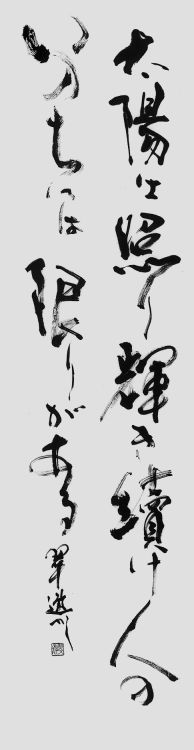 太陽は照り輝き続け人の
いのちには限りがある
翠遊かく